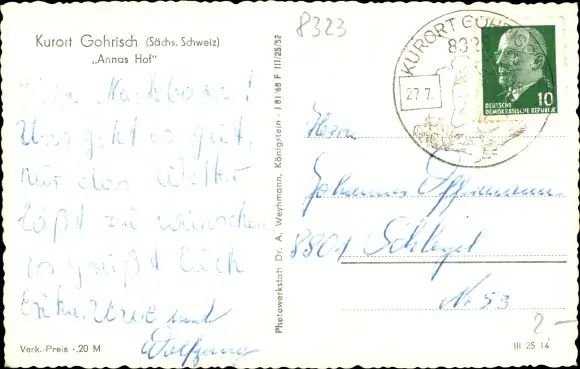 8323
Kurort Gohrisch (Sächs. Schweiz)
„Annas Hof"
Nachbarn!
Uns geht es gut,
nur das Wetter
läßt zu wünschen
es grüßt Euch
und
Wolfgang
Verk.-Preis -,20 M
Photowerkstatt Dr. A. Weyhmann, Königstein · J 81/68 F III/25/52
KURORT GOHR
832
27.7.
DEUTSCHE
DEMOKRATISCHE REPUBLIK
10
Herrn
Johannes
8801 Schlegel
Nr. 53
2-
III 25 14